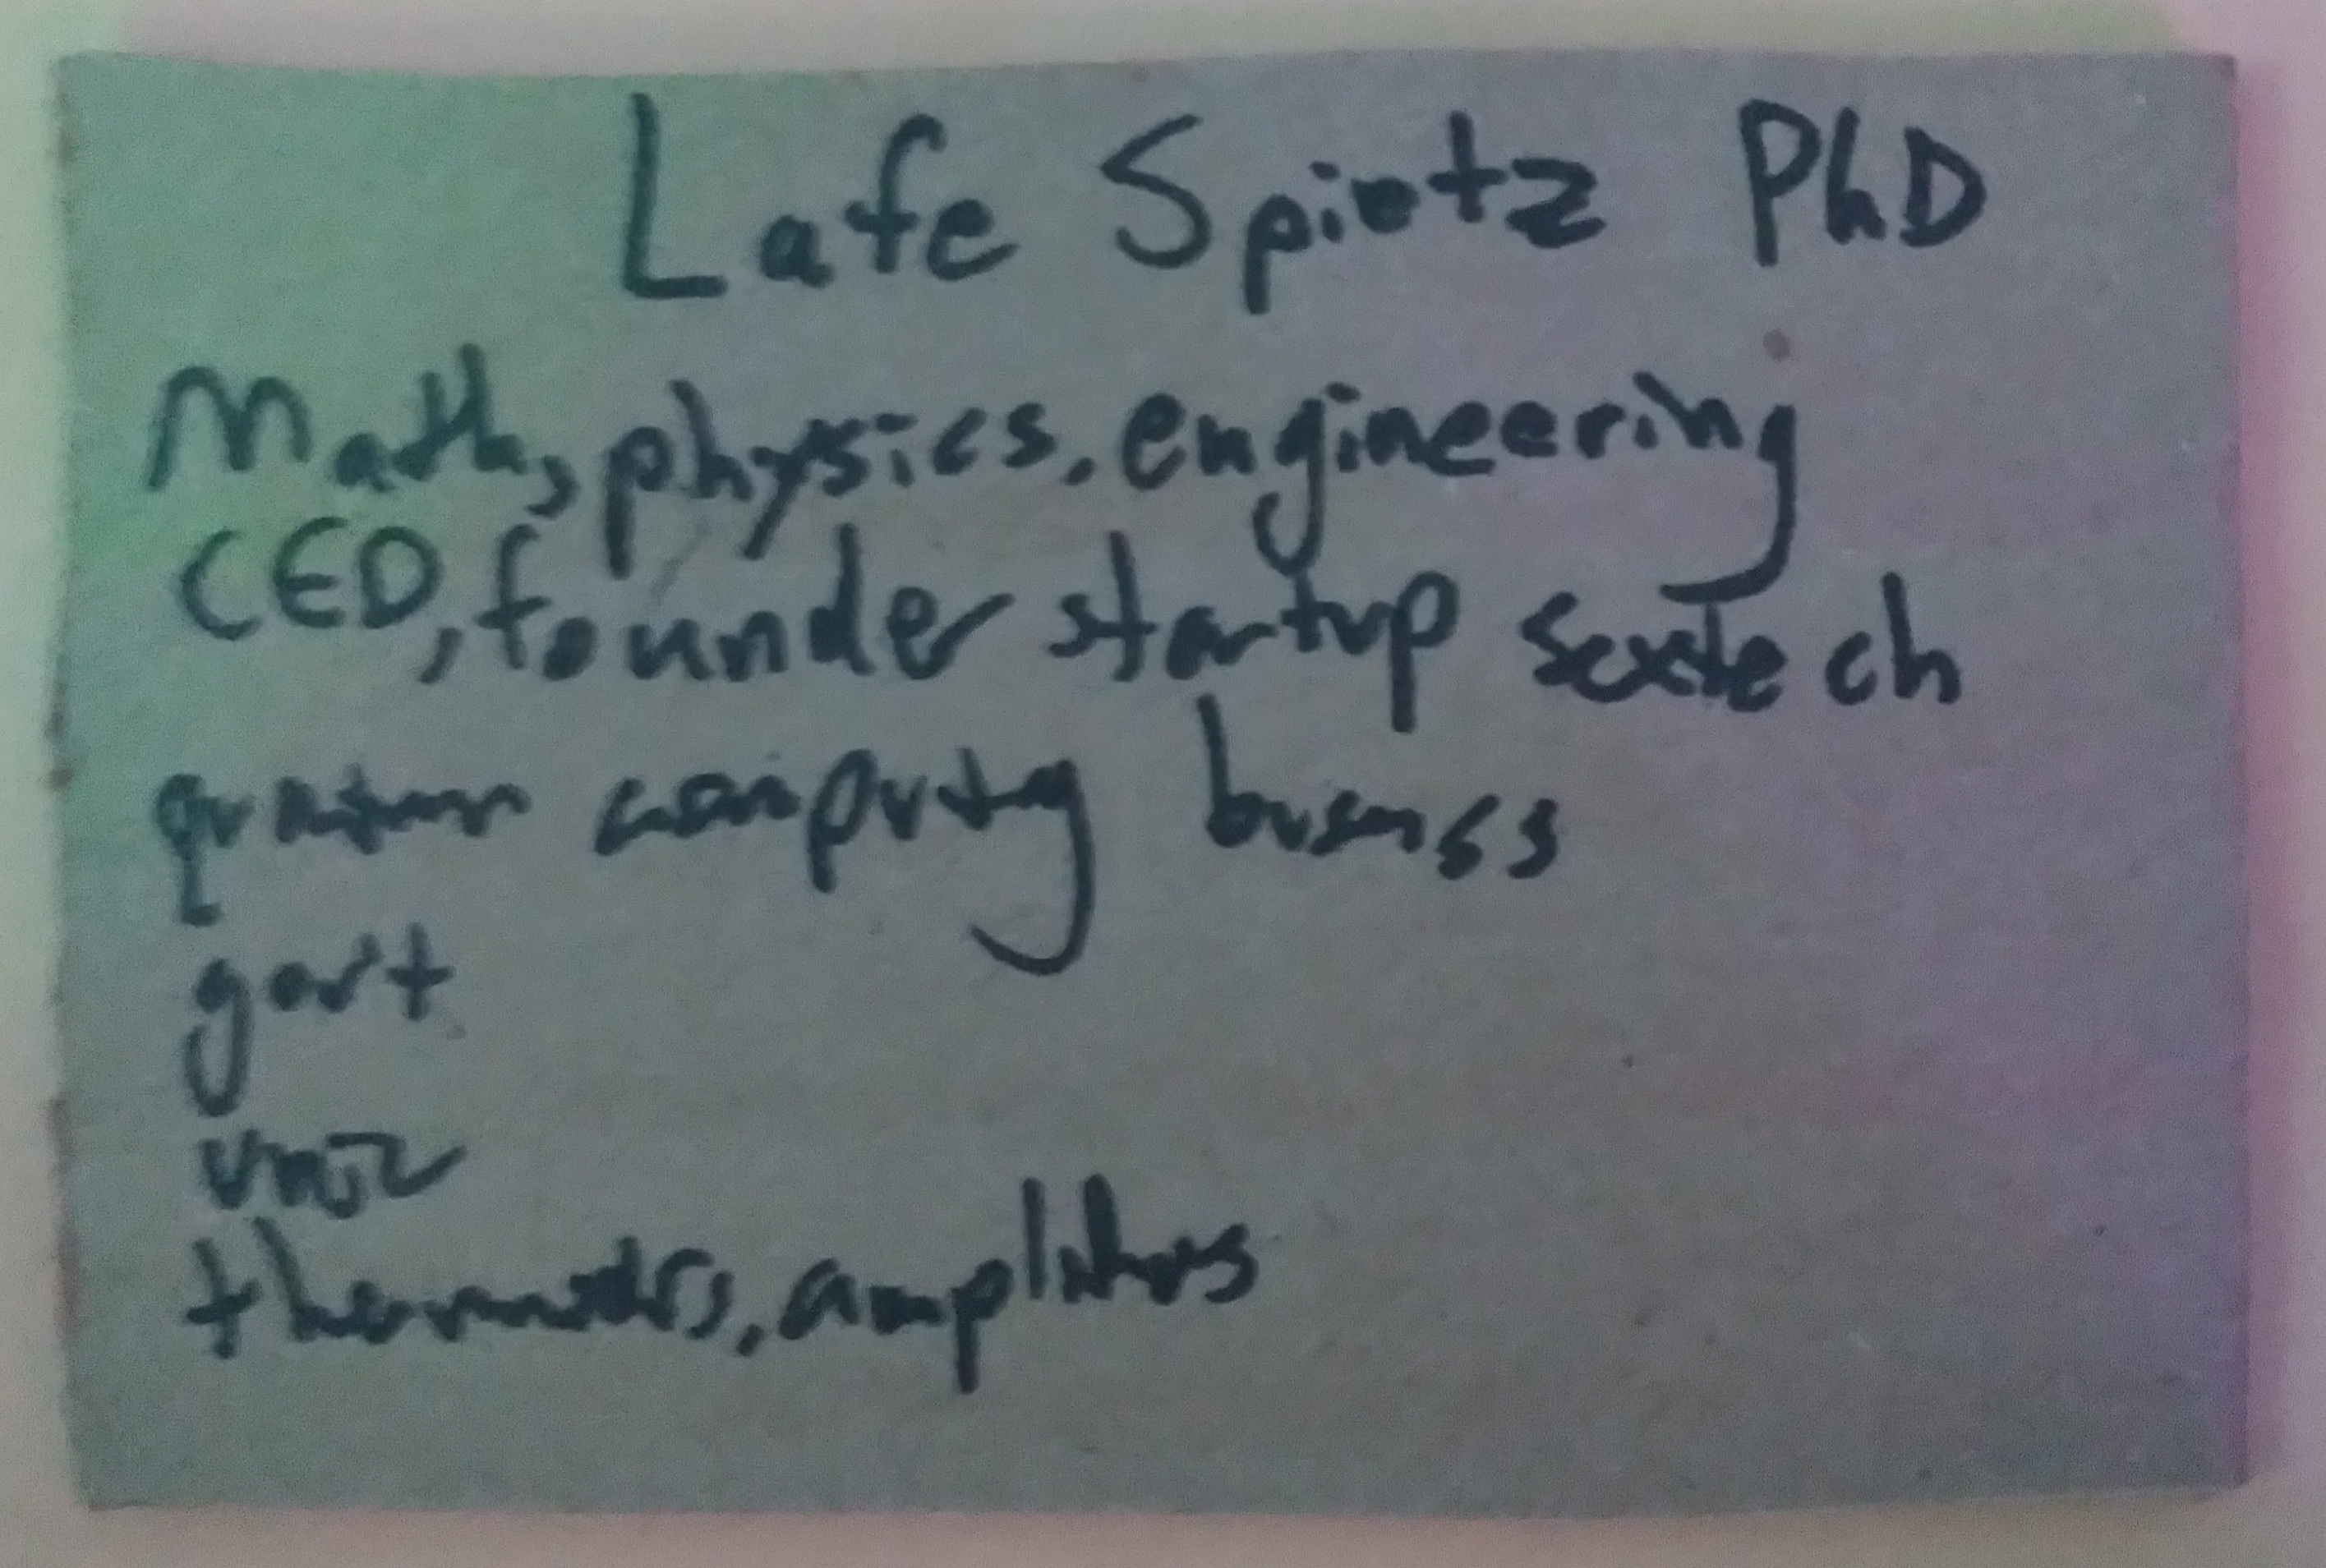 Lafe Spietz PhD
Math, physics, engineering
CEO, founder startup sextech
quantum computing business
govt
univ
thermometers, amplifiers